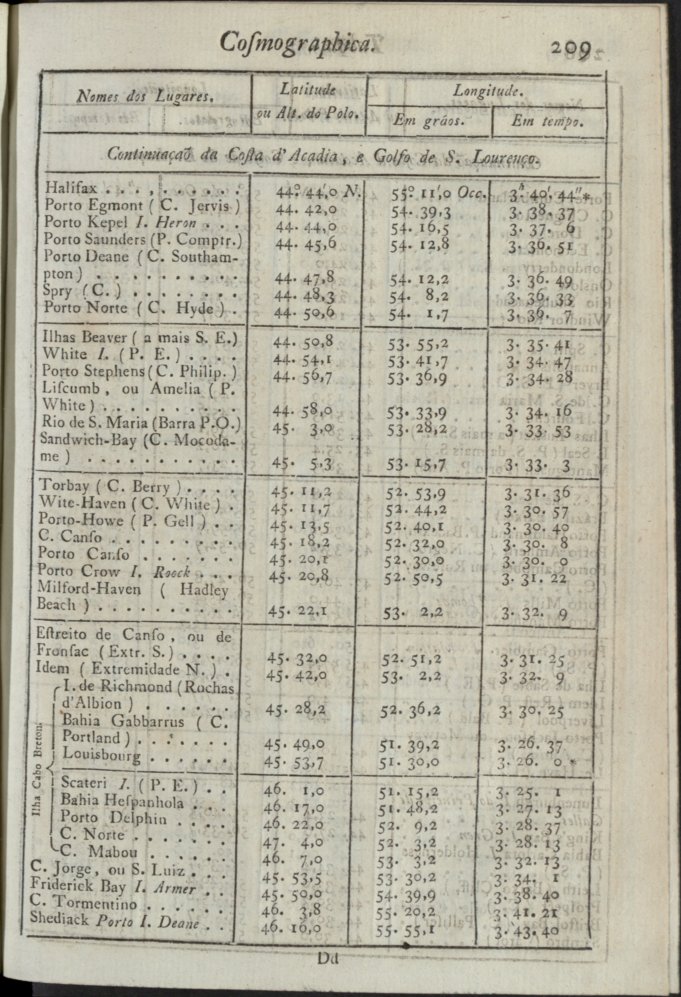 Coſmographica. 209
Nomes dos Lugares. Latitude Longitude.
ou Alt. do Polo. Em gráos. Em tempo.
Continuaçaõ da Coſta d'Acadia, e Golfo de S. Lourenço.
Halifax . . . , . . . . . . 44.° 44,′0 N. 55.° 11,′0 Occ. 3.ʰ 40.′ 44″*
Porto Egmont ( C. Jervis ) 44. 42,0 54. 39,3 3. 38. 37
Porto Kepel I. Heron . . . 44. 44,0 54. 16,5 3. 37. 6
Porto Saunders (P. Comptr.) 44. 45,6 54. 12,8 3. 36. 51
Porto Deane ( C. Southam-
pton ) . . . . . . . . . 44. 47,8 54. 12,2 3. 36. 49
Spry ( C. ) . . . . . . . 44. 48,3 54. 8,2 3. 36. 33
Porto Norte ( C. Hyde ) . 44. 50,6 54. 1,7 3. 36. 7
Ilhas Beaver ( a mais S. E.) 44. 50,8 53. 55,2 3. 35. 41
White I. ( P. E. ) . . . . 44. 54,1 53. 41,7 3. 34. 47
Porto Stephens ( C. Philip. ) 44. 56,7 53. 36,9 3. 34. 28
Liſcumb, ou Amelia ( P.
White ) . . . . . . . . . 44. 58,0 53. 33,9 3. 34. 16
Rio de S. Maria (Barra P.O.) 45. 3,0 53. 28,2 3. 33. 53
Sandwich-Bay (C. Mocoda-
me ) . . . . . . . . . . 45. 5,3 53. 15,7 3. 33. 3
Torbay ( C. Berry ) . . . . 45. 11,2 52. 53,9 3. 31. 36
Wite-Haven ( C. White ) . 45. 11,7 52. 44,2 3. 30. 57
Porto-Howe ( P. Gell ) . . 45. 13,5 52. 40,1 3. 30. 40
C. Canſo . . . . . . . . 45. 18,2 52. 32,0 3. 30. 8
Porto Canſo . . . . . . . 45. 20,1 52. 30,0 3. 30. 0
Porto Crow I. Roock . . . 45. 20,8 52. 50,5 3. 31. 22
Milford-Haven ( Hadley
Beach ) . . . . . . . . . 45. 22,1 53. 2,2 3. 32. 9
Eſtreito de Canſo, ou de
Fronſac ( Extr. S. ) . . . . 45. 32,0 52. 51,2 3. 31. 25
Idem ( Extremidade N. ) . 45. 42,0 53. 2,2 3. 32. 9
Ilha Cabo Bretom.
I. de Richmond (Rochas
d'Albion ) . . . . . . 45. 28,2 52. 36,2 3. 30. 25
Bahia Gabbarrus ( C.
Portland ) . . . . . . . 45. 49,0 51. 39,2 3. 26. 37
Louisbourg . . . . . . 45. 53,7 51. 30,0 3. 26. 0 *
Scateri I. ( P. E. ) . . 46. 1,0 51. 15,2 3. 25. 1
Bahia Heſpanhola . . . 46. 17,0 51. 48,2 3. 27. 13
Porto Delphin . . . . 46. 22,0 52. 9,2 3. 28. 37
C. Norte . . . . . . . 47. 4,0 52. 3,2 3. 28. 13
C. Mabou . . . . . . 46. 7,0 53. 3,2 3. 32. 13
C. Jorge, ou S. Luiz . . . 45. 53,5 53. 30,2 3. 34. 1
Friderick Bay I. Armer . . 45. 50,0 54. 39,9 3. 38. 40
C. Tormentino . . . . . . 46. 3,8 55. 20,2 3. 41. 21
Shediack Porto I. Deane . . 46. 16,0 55. 55,1 3. 43. 40
Dd